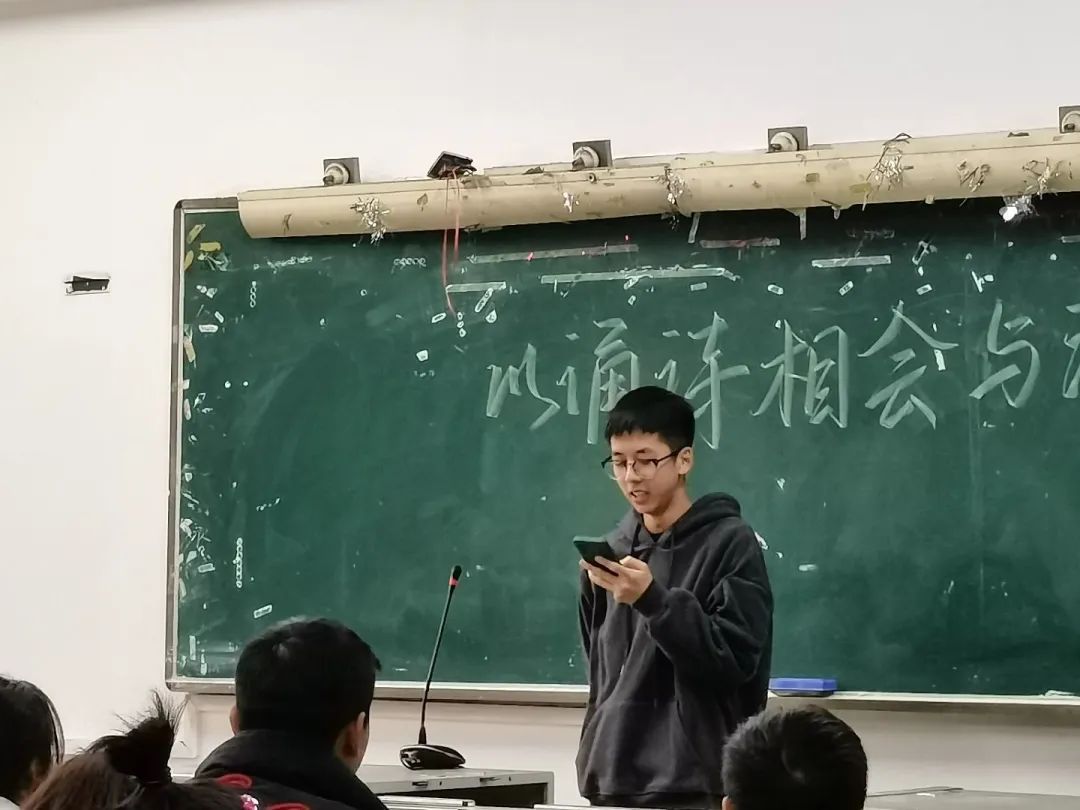 以诵诗相会与